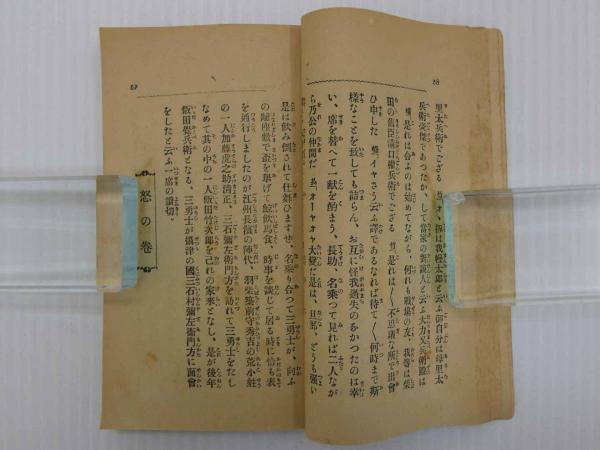 88
里太兵衛でござる 甚オ、扨は我程太郎と云ふ御自分は母里太
兵衛豪傑であつたか、して當家の御談人と云ふ大方又兵衛殿は
甚是れは合よのは始めてながら、何れも戰塲の友、我等は柴
田の舊臣溝口權兵衛でござる 甚是れは〳〵不思議な所で出會
ひ申した 甚イヤさう云ふ譯であるなれば待て〳〵何時まで斯
様なことを致しても詰らん、お互に怪我過失のるかつたのは幸
い、席を替へて一献を酌まう、長助、名乘つて見れば二人なが
ら乃公の仲間だ 甚オーヤオヤ大變だ是は、旦那、どうも強い
89
是は飲み倒されて仕舞ひますぜ、名乘り合つて三勇士が、向ふ
の離座敷で盃を擧げて鯨飲馬食、時事を談じて居る時に恰も表
を通行しましたのが江州長濱の陣代、羽柴筑前守秀吉の荒小姓
の一人加藤虎之助清正、三石彌左衛門方を訪れて三勇士をたし
なめて其の中の一人飯田竹次郎を己れの家來となし、是が後年
飯田覺兵衛となる、三勇士が攝津の國三石村彌左衛門方に面會
をしたと云ふ一席の讀切。
怒の巻